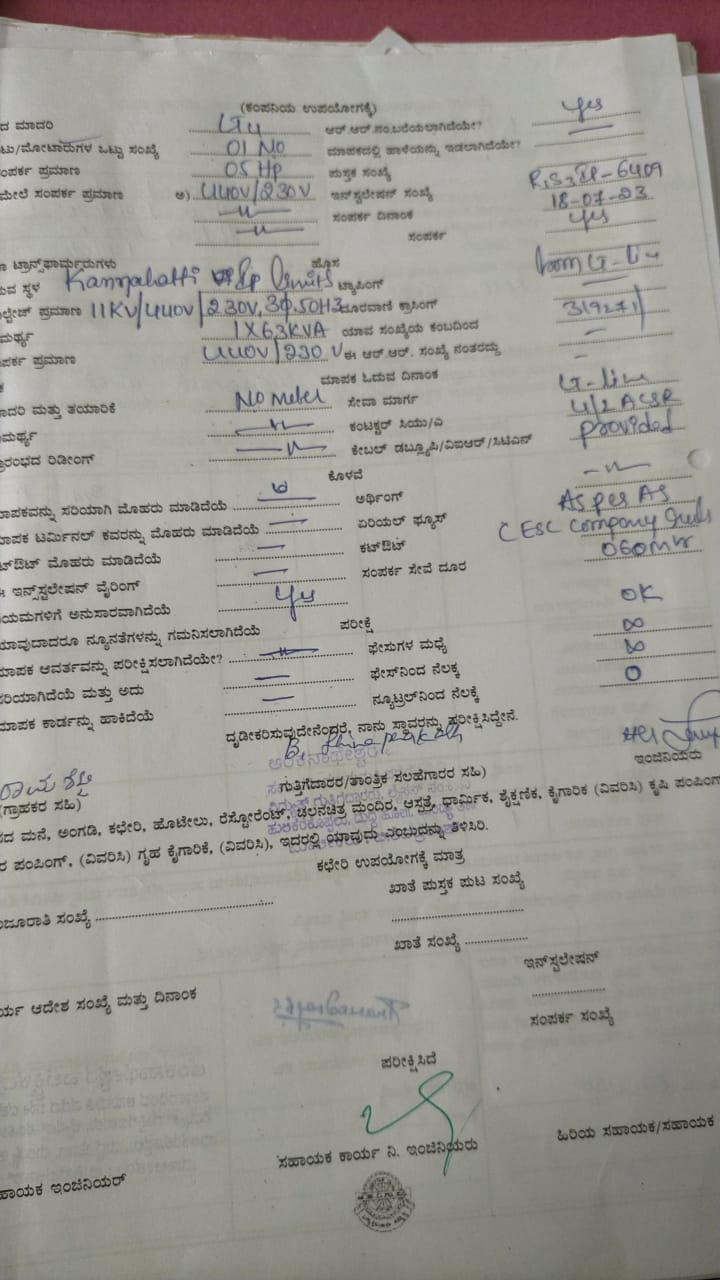 (ಕಂಪನಿಯ ಉಪಯೋಗಕ್ಕೆ)
ದ ಮಾದರಿ LT4 ಆರ್.ಆರ್.ನಂ.ಬರೆಯಲಾಗಿದೆಯೇ? Yes
ಟು/ಮೋಟಾರುಗಳ ಒಟ್ಟು ಸಂಖ್ಯೆ 01 No ಮಾಪಕದಲ್ಲಿ ಹಾಳೆಯನ್ನು ಇಡಲಾಗಿದೆಯೇ?
ಸಂಪರ್ಕ ಪ್ರಮಾಣ 05 Hp ಪುಸ್ತಕ ಸಂಖ್ಯೆ
ಮೇಲೆ ಸಂಪರ್ಕ ಪ್ರಮಾಣ ಅ) 440V/230V ಇನ್‌ಸ್ಟಲೇಷನ್ ಸಂಖ್ಯೆ 6409
ಸಂಪರ್ಕ ದಿನಾಂಕ 18-07-23
ಸಂಪರ್ಕ Yes
ಟ್ರಾನ್ಸ್‌ಫಾರ್ಮರುಗಳು ಹೊಸ
ುವ ಸ್ಥಳ ಟ್ಯಾಪಿಂಗ್ from
ಪ್ರಮಾಣ 11KV/440V/230V, 3Φ, 50HZ ದೂರವಾಣಿ ಕ್ರಾಸಿಂಗ್
ಮರ್ಥ್ಯ 1X63KVA ಯಾವ ಸಂಖ್ಯೆಯ ಕಂಬದಿಂದ
ಪರ್ಕ ಪ್ರಮಾಣ 440V/230V ಈ ಆರ್.ಆರ್. ಸಂಖ್ಯೆ ನಂತರದ್ದು
ಮಾಪಕ ಓದುವ ದಿನಾಂಕ
ಾದರಿ ಮತ್ತು ತಯಾರಿಕೆ No meter ಸೇವಾ ಮಾರ್ಗ G-line
ಮರ್ಥ್ಯ ಕಂಟಕ್ಟರ್ ಸಿಯು/ಎ 4/2 ACSR
ಾರಂಭದ ರಿಡೀಂಗ್ ಕೇಬಲ್ ಡಬ್ಲ್ಯೂಪಿ/ವಿಐಆರ್/ಸಿಟಿಎನ್ provided
ಕೊಳವೆ
ಾಪಕವನ್ನು ಸರಿಯಾಗಿ ಮೊಹರು ಮಾಡಿದೆಯೆ ಅರ್ಥಿಂಗ್
ಾಪಕ ಟರ್ಮಿನಲ್ ಕವರನ್ನು ಮೊಹರು ಮಾಡಿದೆಯೆ ಏರಿಯಲ್ ಫ್ಯೂಸ್ As per AS
ಟ್‌ಔಟ್ ಮೊಹರು ಮಾಡಿದೆಯೆ ಕಟ್‌ಔಟ್ CESC company
ಈ ಇನ್‌ಸ್ಟಲೇಷನ್ ವೈರಿಂಗ್ ಸಂಪರ್ಕ ಸೇವೆ ದೂರ 060
ಿಯಮಗಳಿಗೆ ಅನುಸಾರವಾಗಿದೆಯೆ Yes
ಯಾವುದಾದರೂ ನ್ಯೂನತೆಗಳನ್ನು ಗಮನಿಸಲಾಗಿದೆಯೆ ಪರೀಕ್ಷೆ OK
ಾಪಕ ಆವರ್ತವನ್ನು ಪರೀಕ್ಷಿಸಲಾಗಿದೆಯೇ? ಫೇಸುಗಳ ಮಧ್ಯೆ ∞
ರಿಯಾಗಿದೆಯೆ ಮತ್ತು ಅದು ಫೇಸ್‌ನಿಂದ ನೆಲಕ್ಕೆ ∞
ಮಾಪಕ ಕಾರ್ಡನ್ನು ಹಾಕಿದೆಯೆ ನ್ಯೂಟ್ರಲ್‌ನಿಂದ ನೆಲಕ್ಕೆ 0
ದೃಢೀಕರಿಸುವುದೇನೆಂದರೆ, ನಾನು ಸ್ಥಾವರನ್ನು ಪರೀಕ್ಷಿಸಿದ್ದೇನೆ.
(ಗ್ರಾಹಕರ ಸಹಿ) ಗುತ್ತಿಗೆದಾರರ/ತಾಂತ್ರಿಕ ಸಲಹೆಗಾರರ ಸಹಿ) ಇಂಜಿನಿಯರು
ಸದ ಮನೆ, ಅಂಗಡಿ, ಕಛೇರಿ, ಹೊಟೇಲು, ರೆಸ್ಟೋರೆಂಟ್, ಚಲನಚಿತ್ರ ಮಂದಿರ, ಆಸ್ಪತ್ರೆ, ಧಾರ್ಮಿಕ, ಶೈಕ್ಷಣಿಕ, ಕೈಗಾರಿಕೆ (ವಿವರಿಸಿ) ಕೃಷಿ ಪಂಪಿಂಗ್
ರ ಪಂಪಿಂಗ್, (ವಿವರಿಸಿ) ಗೃಹ ಕೈಗಾರಿಕೆ, (ವಿವರಿಸಿ), ಇದರಲ್ಲಿ ಯಾವುದು ಎಂಬುದನ್ನು ತಿಳಿಸಿರಿ.
ಕಛೇರಿ ಉಪಯೋಗಕ್ಕೆ ಮಾತ್ರ
ಜೂರಾತಿ ಸಂಖ್ಯೆ ಖಾತೆ ಪುಸ್ತಕ ಪುಟ ಸಂಖ್ಯೆ
ಖಾತೆ ಸಂಖ್ಯೆ
ಇನ್‌ಸ್ಟಲೇಷನ್
ರ್ಯ ಆದೇಶ ಸಂಖ್ಯೆ ಮತ್ತು ದಿನಾಂಕ
ಸಂಪರ್ಕ ಸಂಖ್ಯೆ
ಪರೀಕ್ಷಿಸಿದೆ
ಹಾಯಕ ಇಂಜಿನಿಯರ್ ಸಹಾಯಕ ಕಾರ್ಯ ನಿ. ಇಂಜಿನಿಯರು ಹಿರಿಯ ಸಹಾಯಕ/ಸಹಾಯಕ